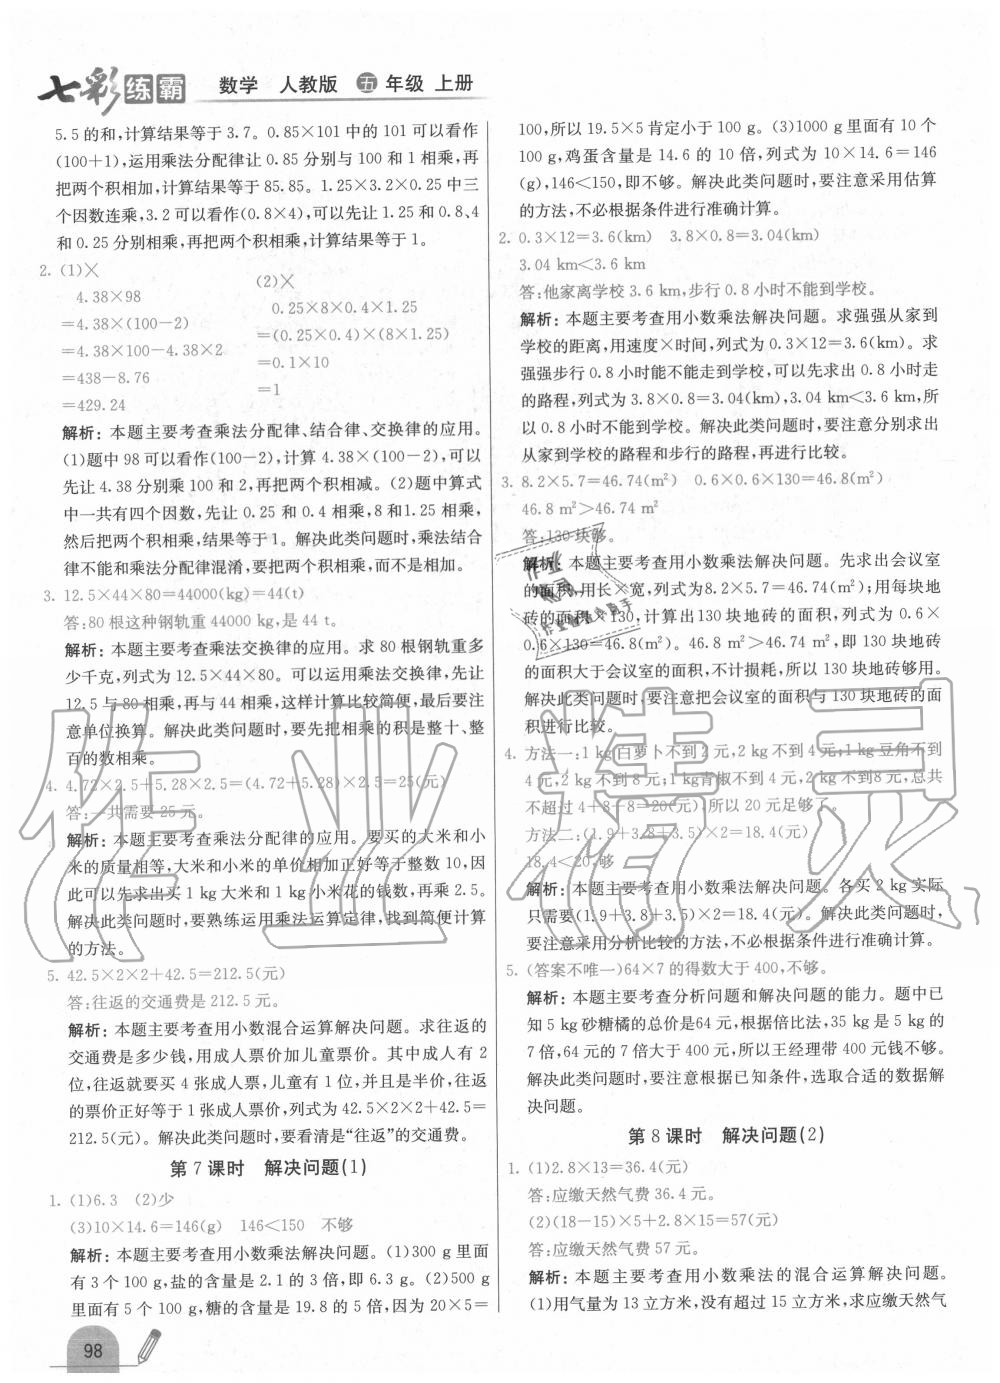 七彩练霸 数学 人教版 五年级 上册
5.5的和,计算结果等于3.7。0.85×101中的101可以看作
(100+1),运用乘法分配律让0.85分别与100和1相乘,再
把两个积相加,计算结果等于85.85。1.25×3.2×0.25中三
个因数连乘,3.2可以看作(0.8×4),可以先让1.25和0.8、4
和0.25分别相乘,再把两个积相乘,计算结果等于1。
2. (1)×
4.38×98
=4.38×(100-2)
=4.38×100-4.38×2
=438-8.76
=429.24
(2)×
0.25×8×0.4×1.25
=(0.25×0.4)×(8×1.25)
=0.1×10
=1
解析:本题主要考查乘法分配律、结合律、交换律的应用。
(1)题中98可以看作(100-2),计算4.38×(100-2),可以
先让4.38分别乘100和2,再把两个积相减。(2)题中算式
中一共有四个因数,先让0.25和0.4相乘,8和1.25相乘,
然后把两个积相乘,结果等于1。解决此类问题时,乘法结合
律不能和乘法分配律混淆,要把两个积相乘,不是相加。
3. 12.5×44×80=44000(kg)=44(t)
答:80根这种钢轨重44000 kg,是44 t。
解析:本题主要考查乘法交换律的应用。求80根钢轨重多
少千克,列式为12.5×44×80。可以运用乘法交换律,先让
12.5与80相乘,再与44相乘,这样计算比较简便,最后要注
意单位换算。解决此类问题时,要先把相乘的积是整十、整
百的数相乘。
4. 4.72×2.5+5.28×2.5=(4.72+5.28)×2.5=25(元)
答:一共需要25元。
解析:本题主要考查乘法分配律的应用。要买的大米和小
米的质量相等,大米和小米的单价相加正好等于整数10,因
此可以先求出买1 kg大米和1 kg小米花的钱数,再乘2.5。
解决此类问题时,要熟练运用乘法运算定律,找到简便计算
的方法。
5. 42.5×2×2+42.5=212.5(元)
答:往返的交通费是212.5元。
解析:本题主要考查用小数混合运算解决问题。求往返的
交通费是多少钱,用成人票价加儿童票价。其中成人有2
位,往返就要买4张成人票,儿童有1位,并且是半价,往返
的票价正好等于1张成人票价,列式为42.5×2×2+42.5=
212.5(元)。解决此类问题时,要看清是“往返”的交通费。
第7课时 解决问题(1)
1. (1)6.3 (2)少
(3)10×14.6=146(g) 146<150 不够
解析:本题主要考查用小数乘法解决问题。(1)300 g里面
有3个100 g,盐的含量是2.1的3倍,即6.3 g。(2)500 g
里面有5个100 g,糖的含量是19.8的5倍,因为20×5=
100,所以19.5×5肯定小于100 g。(3)1000 g里面有10个
100 g,鸡蛋含量是14.6的10倍,列式为10×14.6=146
(g),146<150,即不够。解决此类问题时,要注意采用估算
的方法,不必根据条件进行准确计算。
2. 0.3×12=3.6(km) 3.8×0.8=3.04(km)
3.04 km<3.6 km
答:他家离学校3.6 km,步行0.8小时不能到学校。
解析:本题主要考查用小数乘法解决问题。求强强从家到
学校的距离,用速度×时间,列式为0.3×12=3.6(km)。求
强强步行0.8小时能不能走到学校,可以先求出0.8小时走
的路程,列式为3.8×0.8=3.04(km),3.04 km<3.6 km,所
以0.8小时不能到学校。解决此类问题时,要注意分别求出
从家到学校的路程和步行的路程,再进行比较。
3. 8.2×5.7=46.74(m²) 0.6×0.6×130=46.8(m²)
46.8 m²>46.74 m²
答:130块够。
解析:本题主要考查用小数乘法解决问题。先求出会议室
的面积,用长×宽,列式为8.2×5.7=46.74(m²);用每块地
砖的面积×130,计算出130块地砖的面积,列式为0.6×
0.6×130=46.8(m²)。46.8 m²>46.74 m²,即130块地砖
的面积大于会议室的面积,不计损耗,所以130块地砖够用。
解决此类问题时,要注意把会议室的面积与130块地砖的面
积进行比较。
4. 方法一:1 kg白萝卜不到2元,2 kg不到4元;1 kg豆角不到
4元,2 kg不到8元;1 kg青椒不到4元,2 kg不到8元,总共
不超过4+8+8=20(元),所以20元足够了。
方法二:(1.9+3.8+3.5)×2=18.4(元)
18.4<20,够
解析:本题主要考查用小数乘法解决问题。各买2 kg实际
只需要(1.9+3.8+3.5)×2=18.4(元)。解决此类问题时,
要注意采用分析比较的方法,不必根据条件进行准确计算。
5. (答案不唯一)64×7的得数大于400,不够。
解析:本题主要考查分析问题和解决问题的能力。题中已
知5 kg砂糖橘的总价是64元,根据倍比法,35 kg是5 kg的
7倍,64元的7倍大于400元,所以王经理带400元钱不够。
解决此类问题时,要注意根据已知条件,选取合适的数据解
决问题。
第8课时 解决问题(2)
1. (1)2.8×13=36.4(元)
答:应缴天然气费36.4元。
(2)(18-15)×5+2.8×15=57(元)
答:应缴天然气费57元。
解析:本题主要考查用小数乘法的混合运算解决问题。
(1)用气量为13立方米,没有超过15立方米,求应缴天然气
98
作业精灵